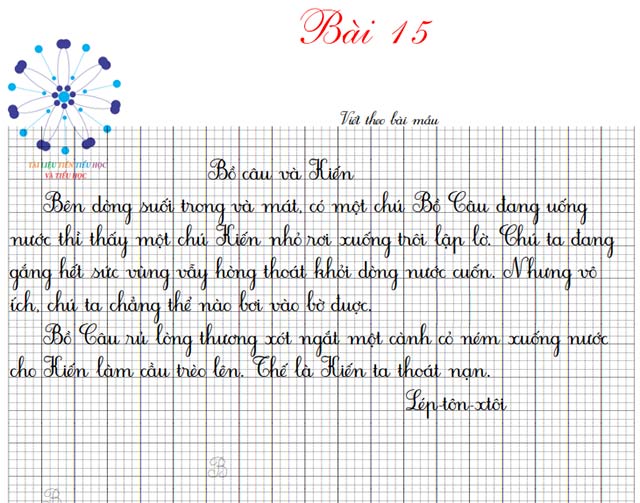 Bài 15
Viết theo bài mẫu
TÀI LIỆU TIỀN TIỂU HỌC
VÀ TIỂU HỌC
Bồ câu và Kiến
Bên dòng suối trong và mát, có một chú Bồ Câu đang uống
nước thì thấy một chú Kiến nhỏ rơi xuống trôi lập lờ. Chú ta đang
gắng hết sức vùng vẫy hòng thoát khỏi dòng nước cuốn. Nhưng vô
ích, chú ta chẳng thể nào bơi vào bờ được.
Bồ Câu rủ lòng thương xót ngắt một cành cỏ ném xuống nước
cho Kiến làm cầu trèo lên. Thế là Kiến ta thoát nạn.
Lép-tôn-xtôi
B
B